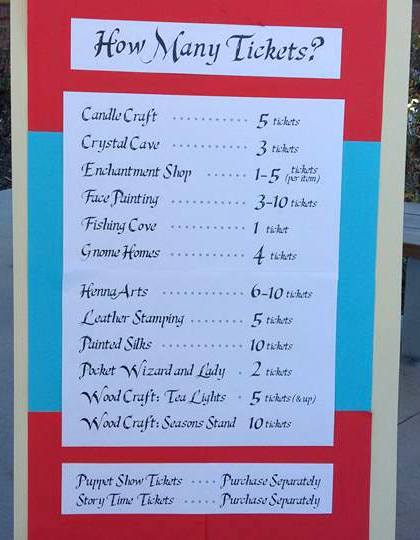 How Many Tickets?
Candle Craft ........... 5 tickets
Crystal Cave ........... 3 tickets
Enchantment Shop ....... 1-5 tickets (per item)
Face Painting .......... 3-10 tickets
Fishing Cove ........... 1 ticket
Gnome Homes ............ 4 tickets
Henna Arts ............. 6-10 tickets
Leather Stamping ........ 5 tickets
Painted Silks .......... 10 tickets
Pocket Wizard and Lady . 2 tickets
Wood Craft: Tea Lights . 5 tickets (& up)
Wood Craft: Seasons Stand 10 tickets
Puppet Show Tickets ..... Purchase Separately
Story Time Tickets ..... Purchase Separately